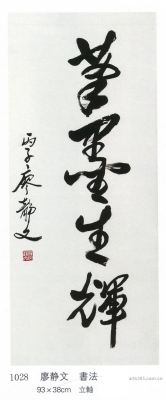 筆墨生輝
丙子廖静文
1028 廖静文 書法
93×38cm 立軸